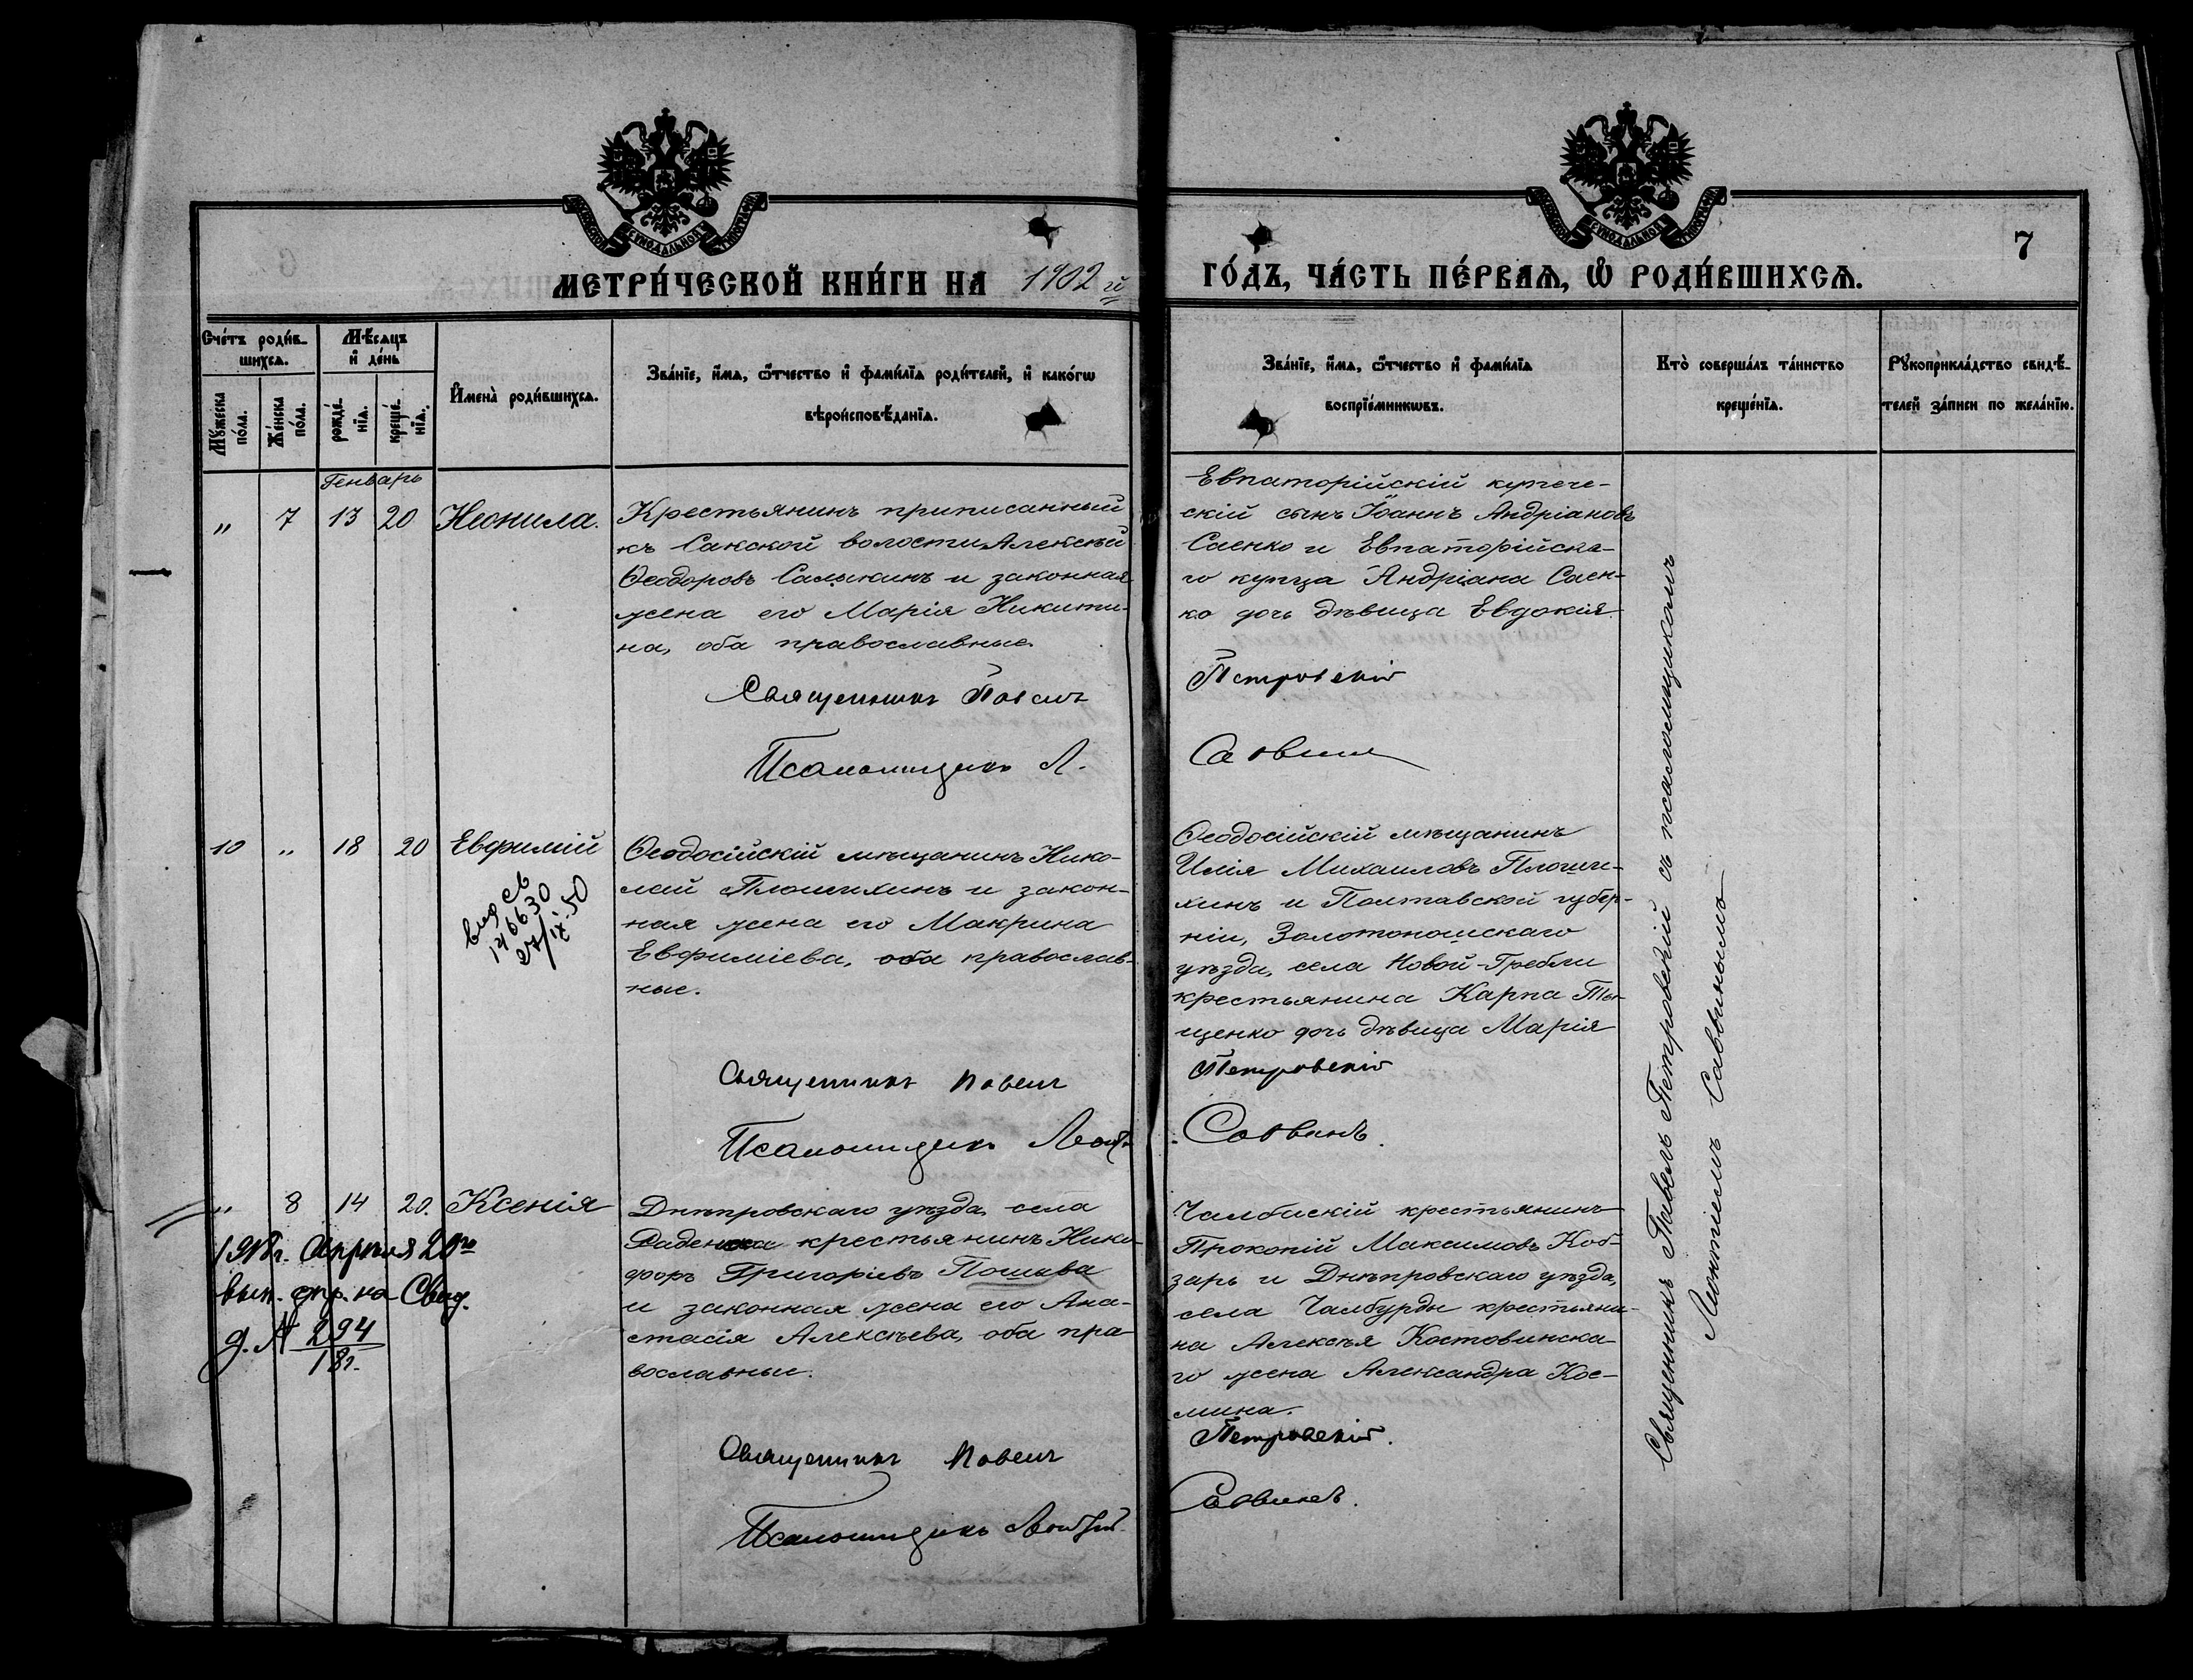 МЕТРИ́ЧЕСКОЙ КНИ́ГИ НА 1902 й
ГО́ДЪ, ЧА́СТЬ ПЕ́РВАѦ, Ѽ РОДИ́ВШИХСѦ.
7
Сче́тъ роди́в-
шихсѧ.
Мѣсѧцъ
и҆ де́нь
Мꙋ́жеска
по́ла.
Же́нска
по́ла.
рожде́-
нїѧ.
креще́-
нїѧ.
И҆мена̀ роди́вшихсѧ.
Зва́нїе, и҆́мѧ, ѻ҆́тчество и҆ фами́лїѧ роди́телей, и҆ како́гѡ
вѣроисповѣ́данїѧ.
Зва́нїе, и҆́мѧ, ѻ҆́тчество и҆ фами́лїѧ
воспрїе́мникѡвъ.
Кто̀ соверша́лъ та́инство
креще́нїѧ.
Рꙋкоприкла́дство свидѣ́-
телей за́писи по жела́нїю.
Генварь
" 7 13 20 Неонила.
Крестьянинъ приписанный
къ Сакской волости Алексѣй
Ѳеодоровъ Салыкинъ и законная
жена его Марія Никити-
на, оба православные
Священникъ Павелъ
Псаломщикъ Л.
Евпаторійскій купече-
скій сынъ Іоаннъ Андріановъ
Саенко и Евпаторійска-
го купца Андріана Саен-
ко дочь дѣвица Евдокія
Петровскій
Саввин
10 " 18 20 Евфимій
выд св
146630
27/IX 50
Ѳеодосійскій мѣщанинъ Нико-
лай Плошихинъ и закон-
ная жена его Макрина
Евфиміева, оба православ-
ные.
Священникъ Павелъ
Псаломщикъ Леонт
Ѳеодосійскій мѣщанинъ
Илія Михаиловъ Плоше-
хинъ и Полтавской губер-
ніи, Золотоношскаго
уѣзда, села Новой-Гребли
крестьянина Карпа
щенко дочь дѣвица Марія
Петровскій
Саввинъ.
" 8 14 20. Ксенія
1918 г. Апрѣля 20го
вып. спр. на Свад.
д. № 294
18 г.
Днѣпровскаго уѣзда, села
крестьянинъ Ники-
форъ Григоріевъ Пошава
и законная жена его Ана-
стасія Алексѣева, оба пра-
вославные.
Священникъ Павелъ
Псаломщикъ Леонтій.
Чалбаскій крестьянинъ
Прокопій Максимовъ Коб-
зарь и Днѣпровскаго уѣзда,
села Чалбурды крестьяни-
на Алексѣя Костовинска-
го жена Александра Кос-
мина.
Петровскій.
Саввинъ.
Священникъ Павелъ Петровскій съ псаломщикомъ
Леонтіемъ Саввинымъ